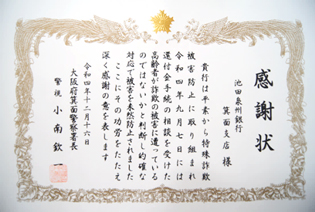 感謝状
池田泉州銀行
箕面支店 様
貴行は平素から特殊詐欺
被害防止に取り組まれ
令和四年九月七日には
還付金手続の相談を受けた
高齢者が詐欺の被害に遭っている
のではないかと判断し的確な
対応で被害を未然防止されました
ここにその功労をたたえ
深く感謝の意を表します
令和四年十二月十六日
大阪府箕面警察署長
警視 小南 欽一